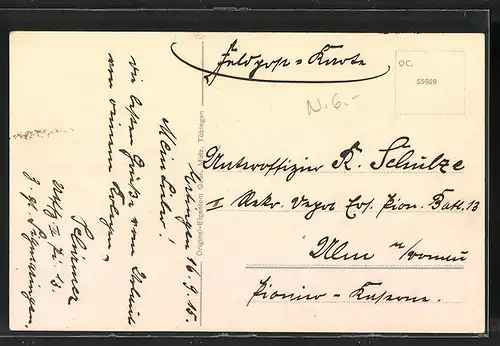 Feldpost = Karte
OC.
55989
N. 6.-
Unteroffizier R. Schulze
I Rekr. Depot Ers. Pion. Batl. 13
Ulm a/Donau
Pionier - Kaserne.
Original-Eigentum Gebr. Metz, Tübingen
16.9.15.
Mein Lieber!
die besten Grüße vom Urlaub
von deinem Kollegen